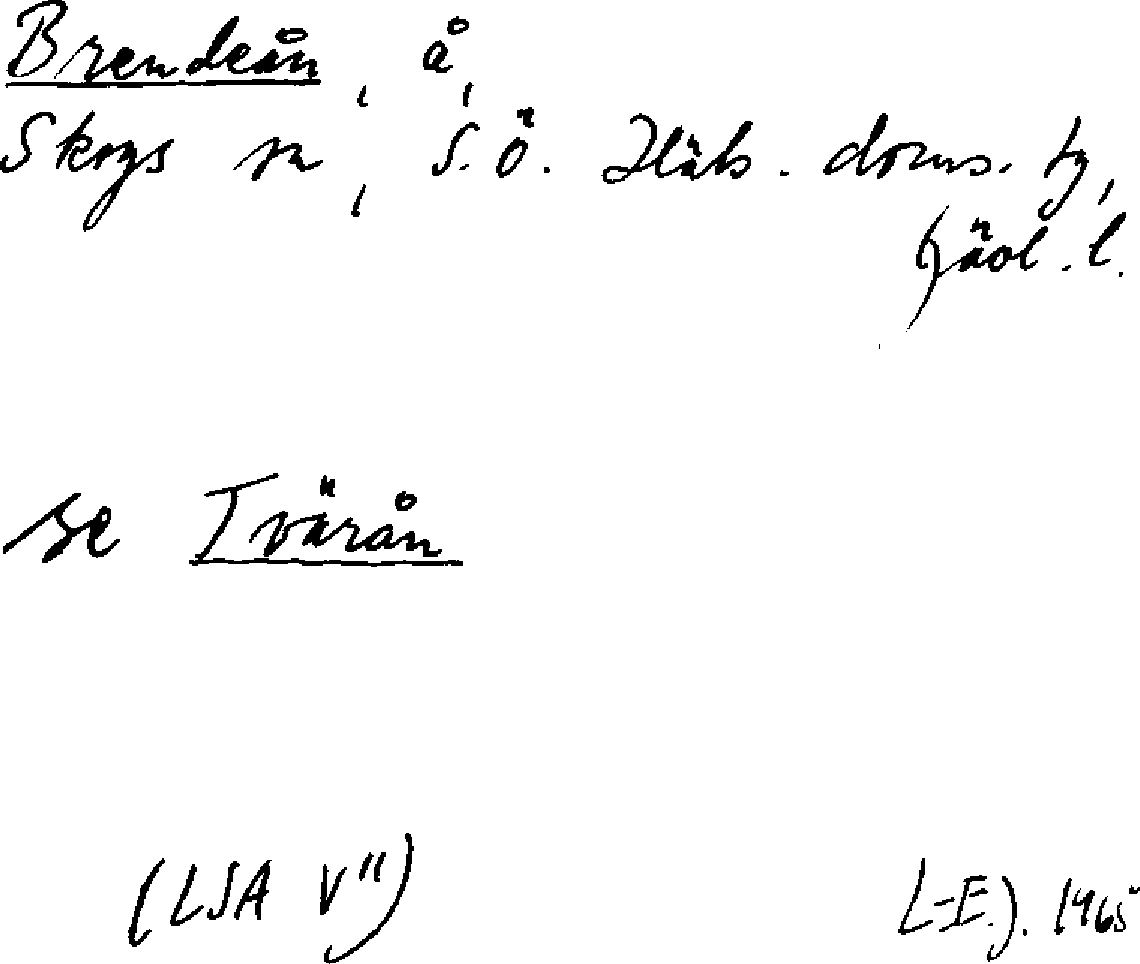 Brendeån, å,
Skogs sn, S.Ö. Häls. doms. tg,
Gävl. l.
se Tvärån
(LSA V") L-E.J. 1965